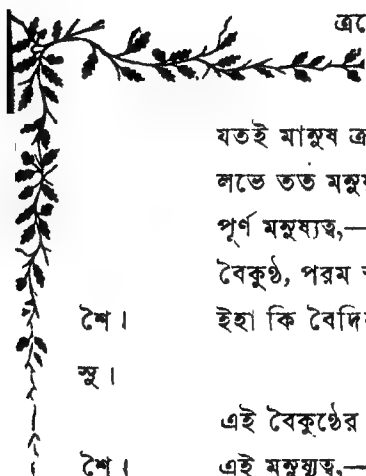 যতই মানুষ
লভে তত
পূর্ণ মনুষ্যত্ব,—
বৈকুণ্ঠ, পরম
শৈ। ইহা কি
সু।
এই বৈকুণ্ঠের
শৈ। এই মনুষ্যত্ব,—